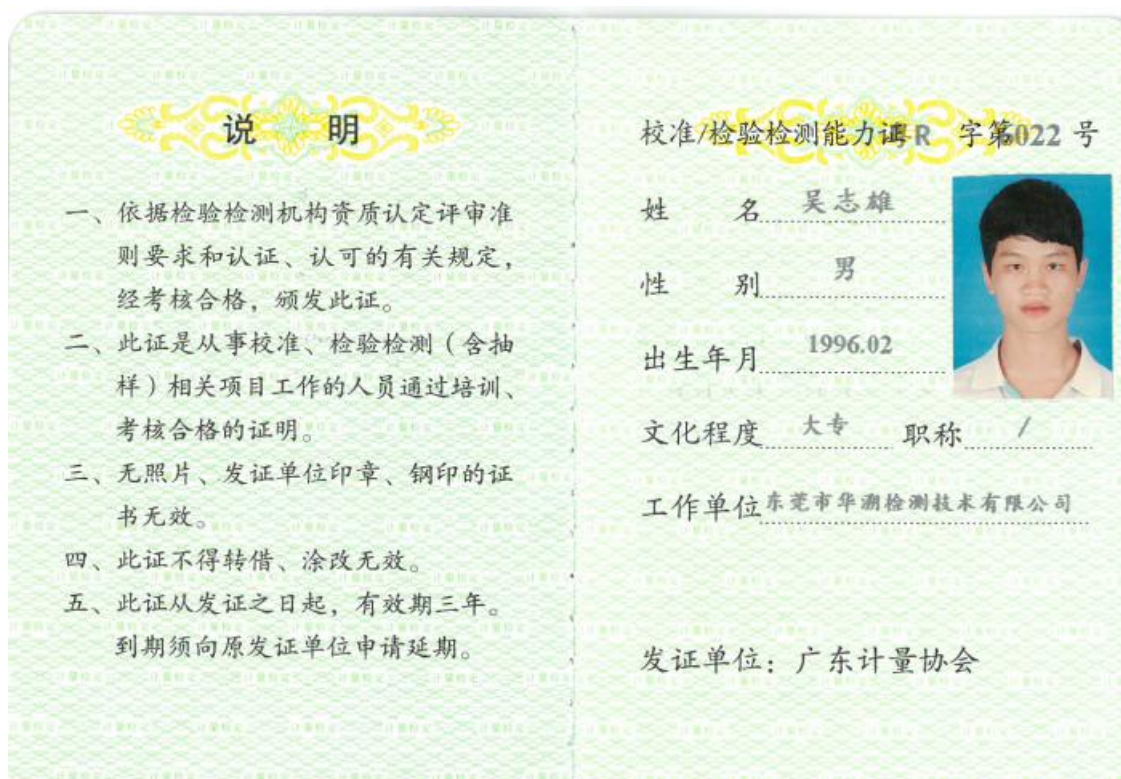 说 明
一、依据检验检测机构资质认定评审准
则要求和认证、认可的有关规定，
经考核合格，颁发此证。
二、此证是从事校准、检验检测（含抽
样）相关项目工作的人员通过培训、
考核合格的证明。
三、无照片、发证单位印章、钢印的证
书无效。
四、此证不得转借、涂改无效。
五、此证从发证之日起，有效期三年。
到期须向原发证单位申请延期。
校准/检验检测能力证 R 字第 022 号
姓 名 吴志雄
性 别 男
出生年月 1996.02
文化程度 大专 职称 /
工作单位 东莞市华溯检测技术有限公司
发证单位：广东计量协会